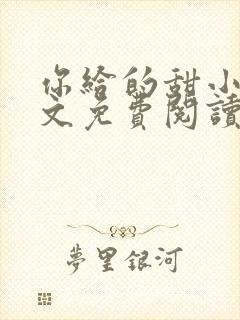 你给的甜小
文免費閱讀
夢里銀河